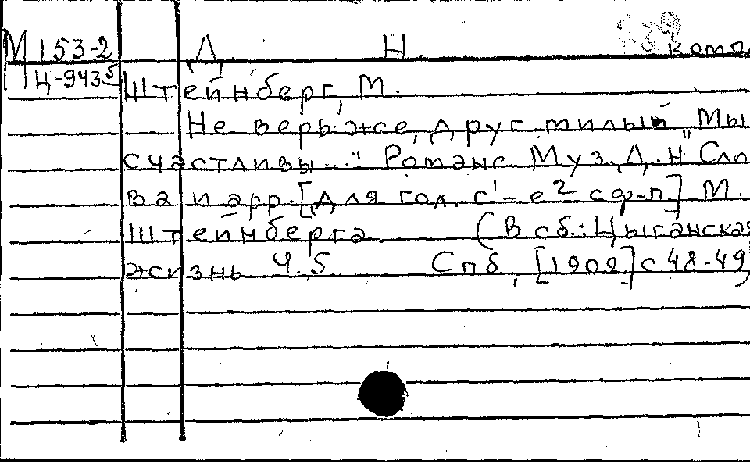 М 153-2 Д. Н. комп.
Ц-943⁵ Штейнберг, М.
Не верь же, друг милый „Мы
счастливы..." Романс Муз. Д. Н. Сло
ва и арр. [для гол. с¹-е² с ф-п.] М.
Штейнберга. (В сб.: Цыганская
жизнь Ч. 5 Спб, [1909] с 48-49